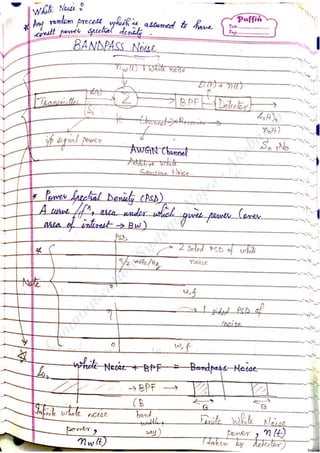 White Noise :
Puffin
Date
Page
* Any random process which is assumed to have
const power spectral density.
BANDPASS NOISE
nw(t) : White noise
S(t) + n(t)
Transmitter
Σ
BPF
Detector
Channel
Receiver
i/p signal power
So, No
AWGN Channel
Additive White
Gaussian Noise
* Power Spectral Density (PSD)
A curve / fn, area under which gives power (over
area of interest → BW)
PSD
→ 2 sided PSD of white
noise
η/2 watts/Hz
w,f
Note
η
→ 1 sided PSD of
noise
0
w,f
White Noise + BPF = Bandpass Noise
→ BPF →
(B
B
B
Infinite white noise
band
Finite White Noise
power,
width,
power, n(t)
nw(t)
(taken by detector)